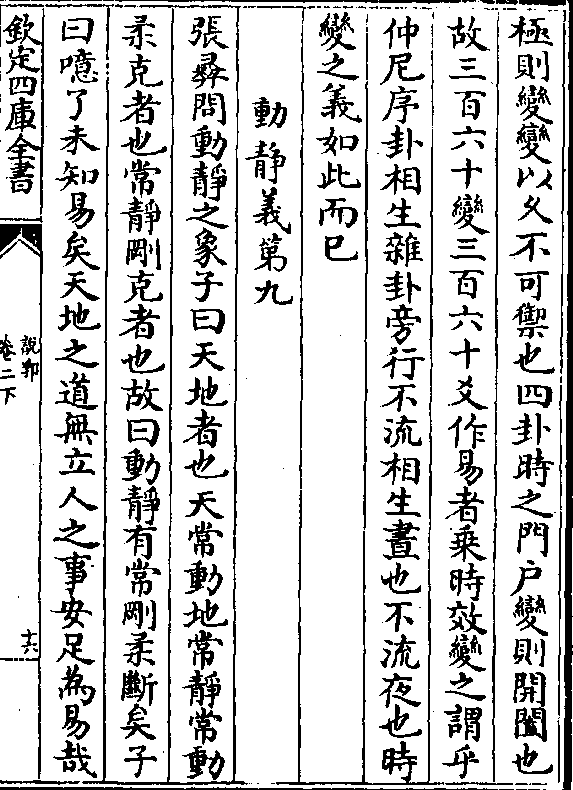 極則變變以久不可禦也四卦時之門户變則開闔也
故三百六十變三百六十爻作易者乗時效變之謂乎
仲尼序卦相生雜卦旁行不流相生晝也不流夜也時
變之義如此而已
動靜義第九
張彛問動靜之象子曰天地者也天常動地常靜常動
柔克者也常靜剛克者也故曰動靜有常剛柔斷矣子
曰噫了未知易矣天地之道無立人之事安足為易哉
欽定四庫全書
說郛
卷二下
十六